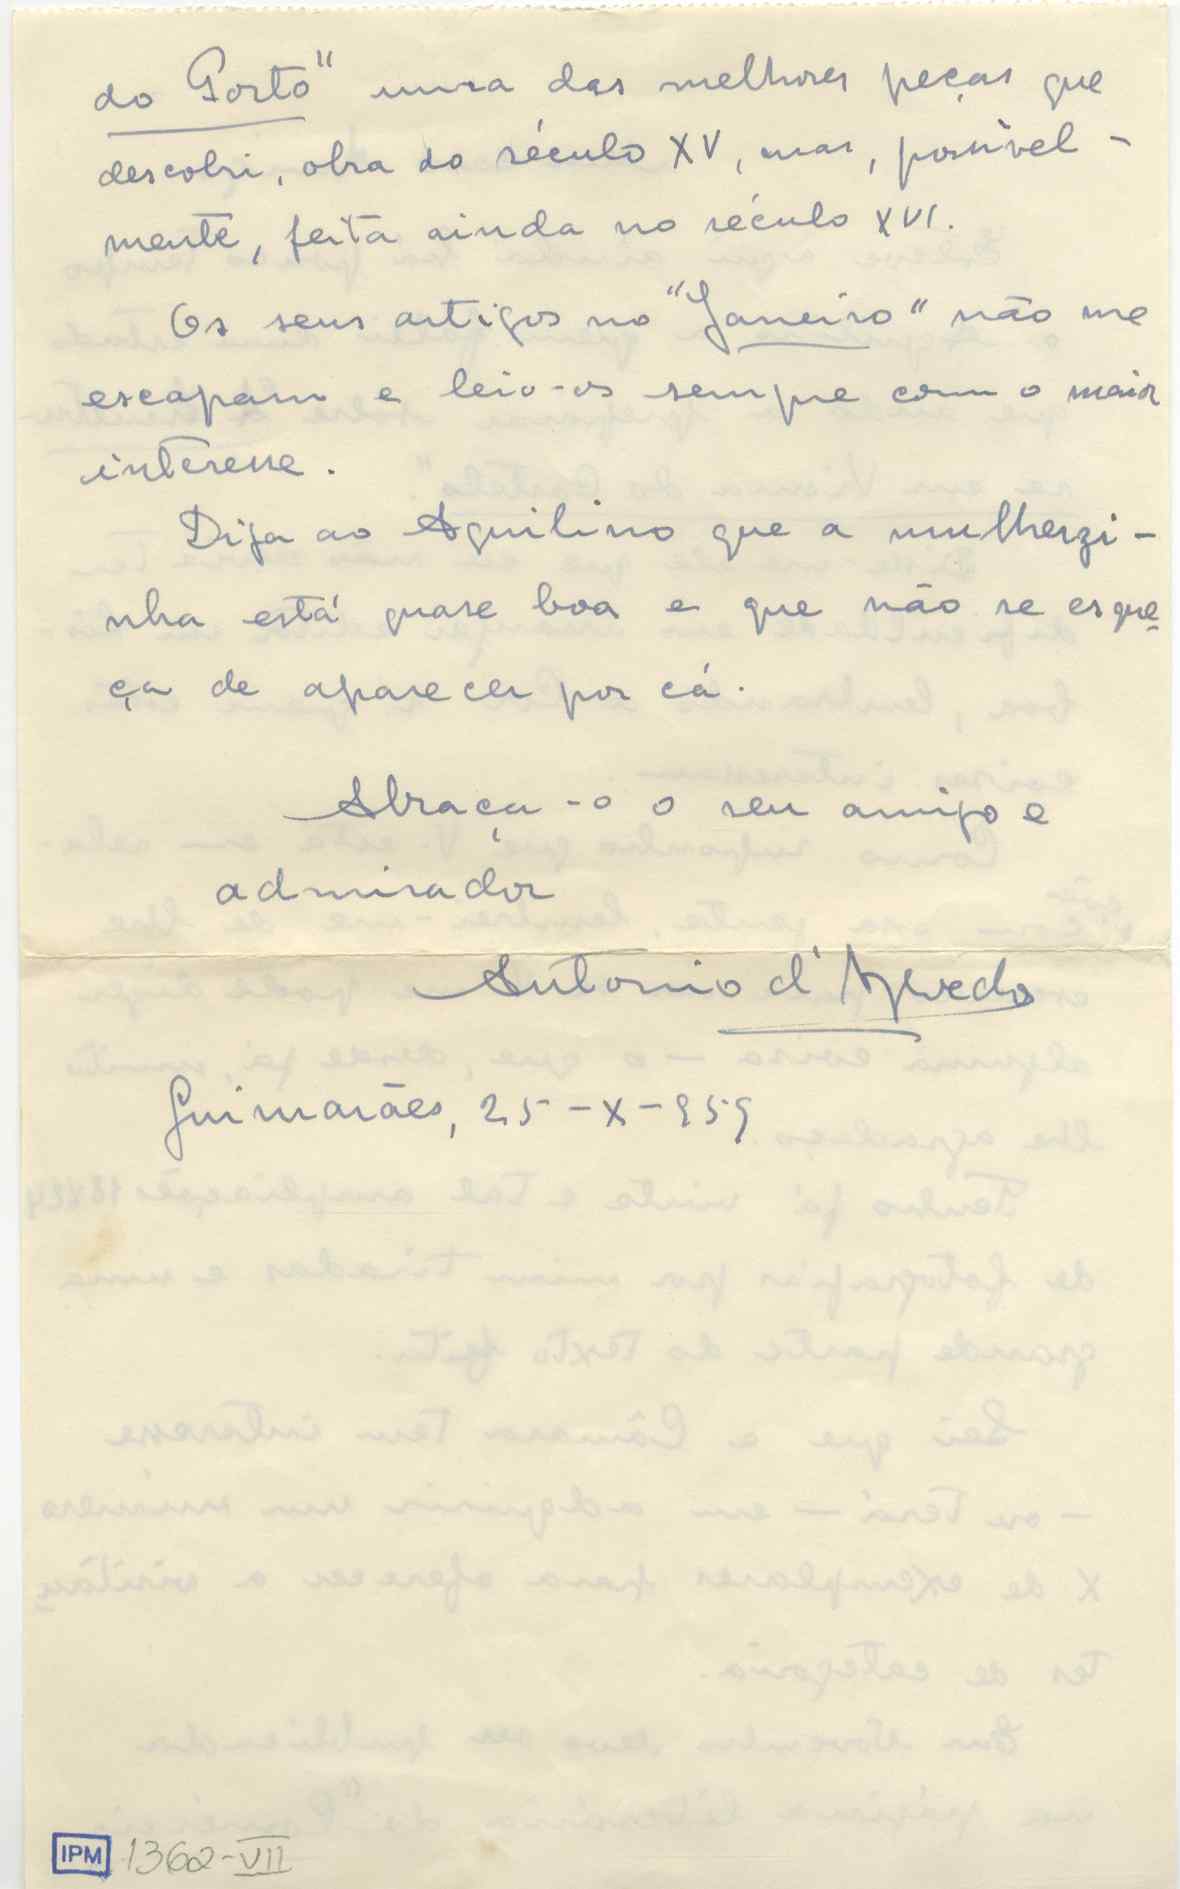 do Porto" uma das melhores peças que
descobri, obra do século XV, mas, possivel-
mente, feita ainda no século XVI.
Os seus artigos no "Janeiro" não me
escapam e leio-os sempre com o maior
interesse.
Diga ao Aquilino que a mulherzi-
nha está quase boa e que não se esque-
ça de aparecer por cá.
Abraça-o o seu amigo e
admirador
Antonio d'Azevedo
Guimarães, 25-X-959
IPM 1362-VII